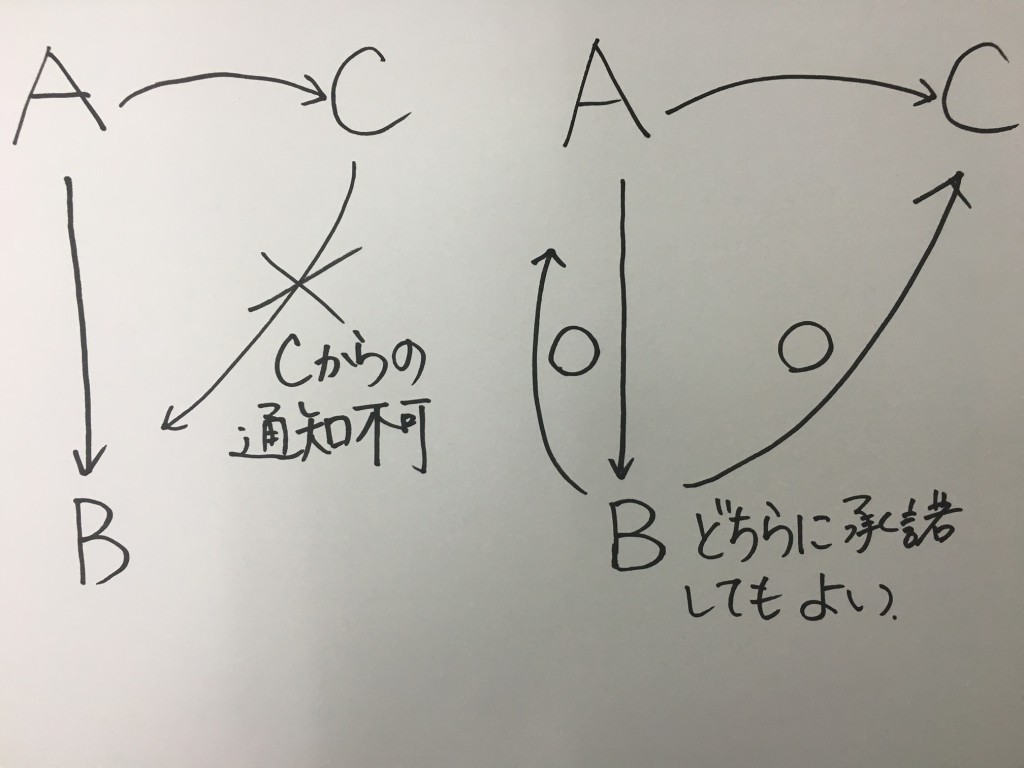 A
C
Cからの
通知不可
B
A
C
B どちらに承諾
してもよい.